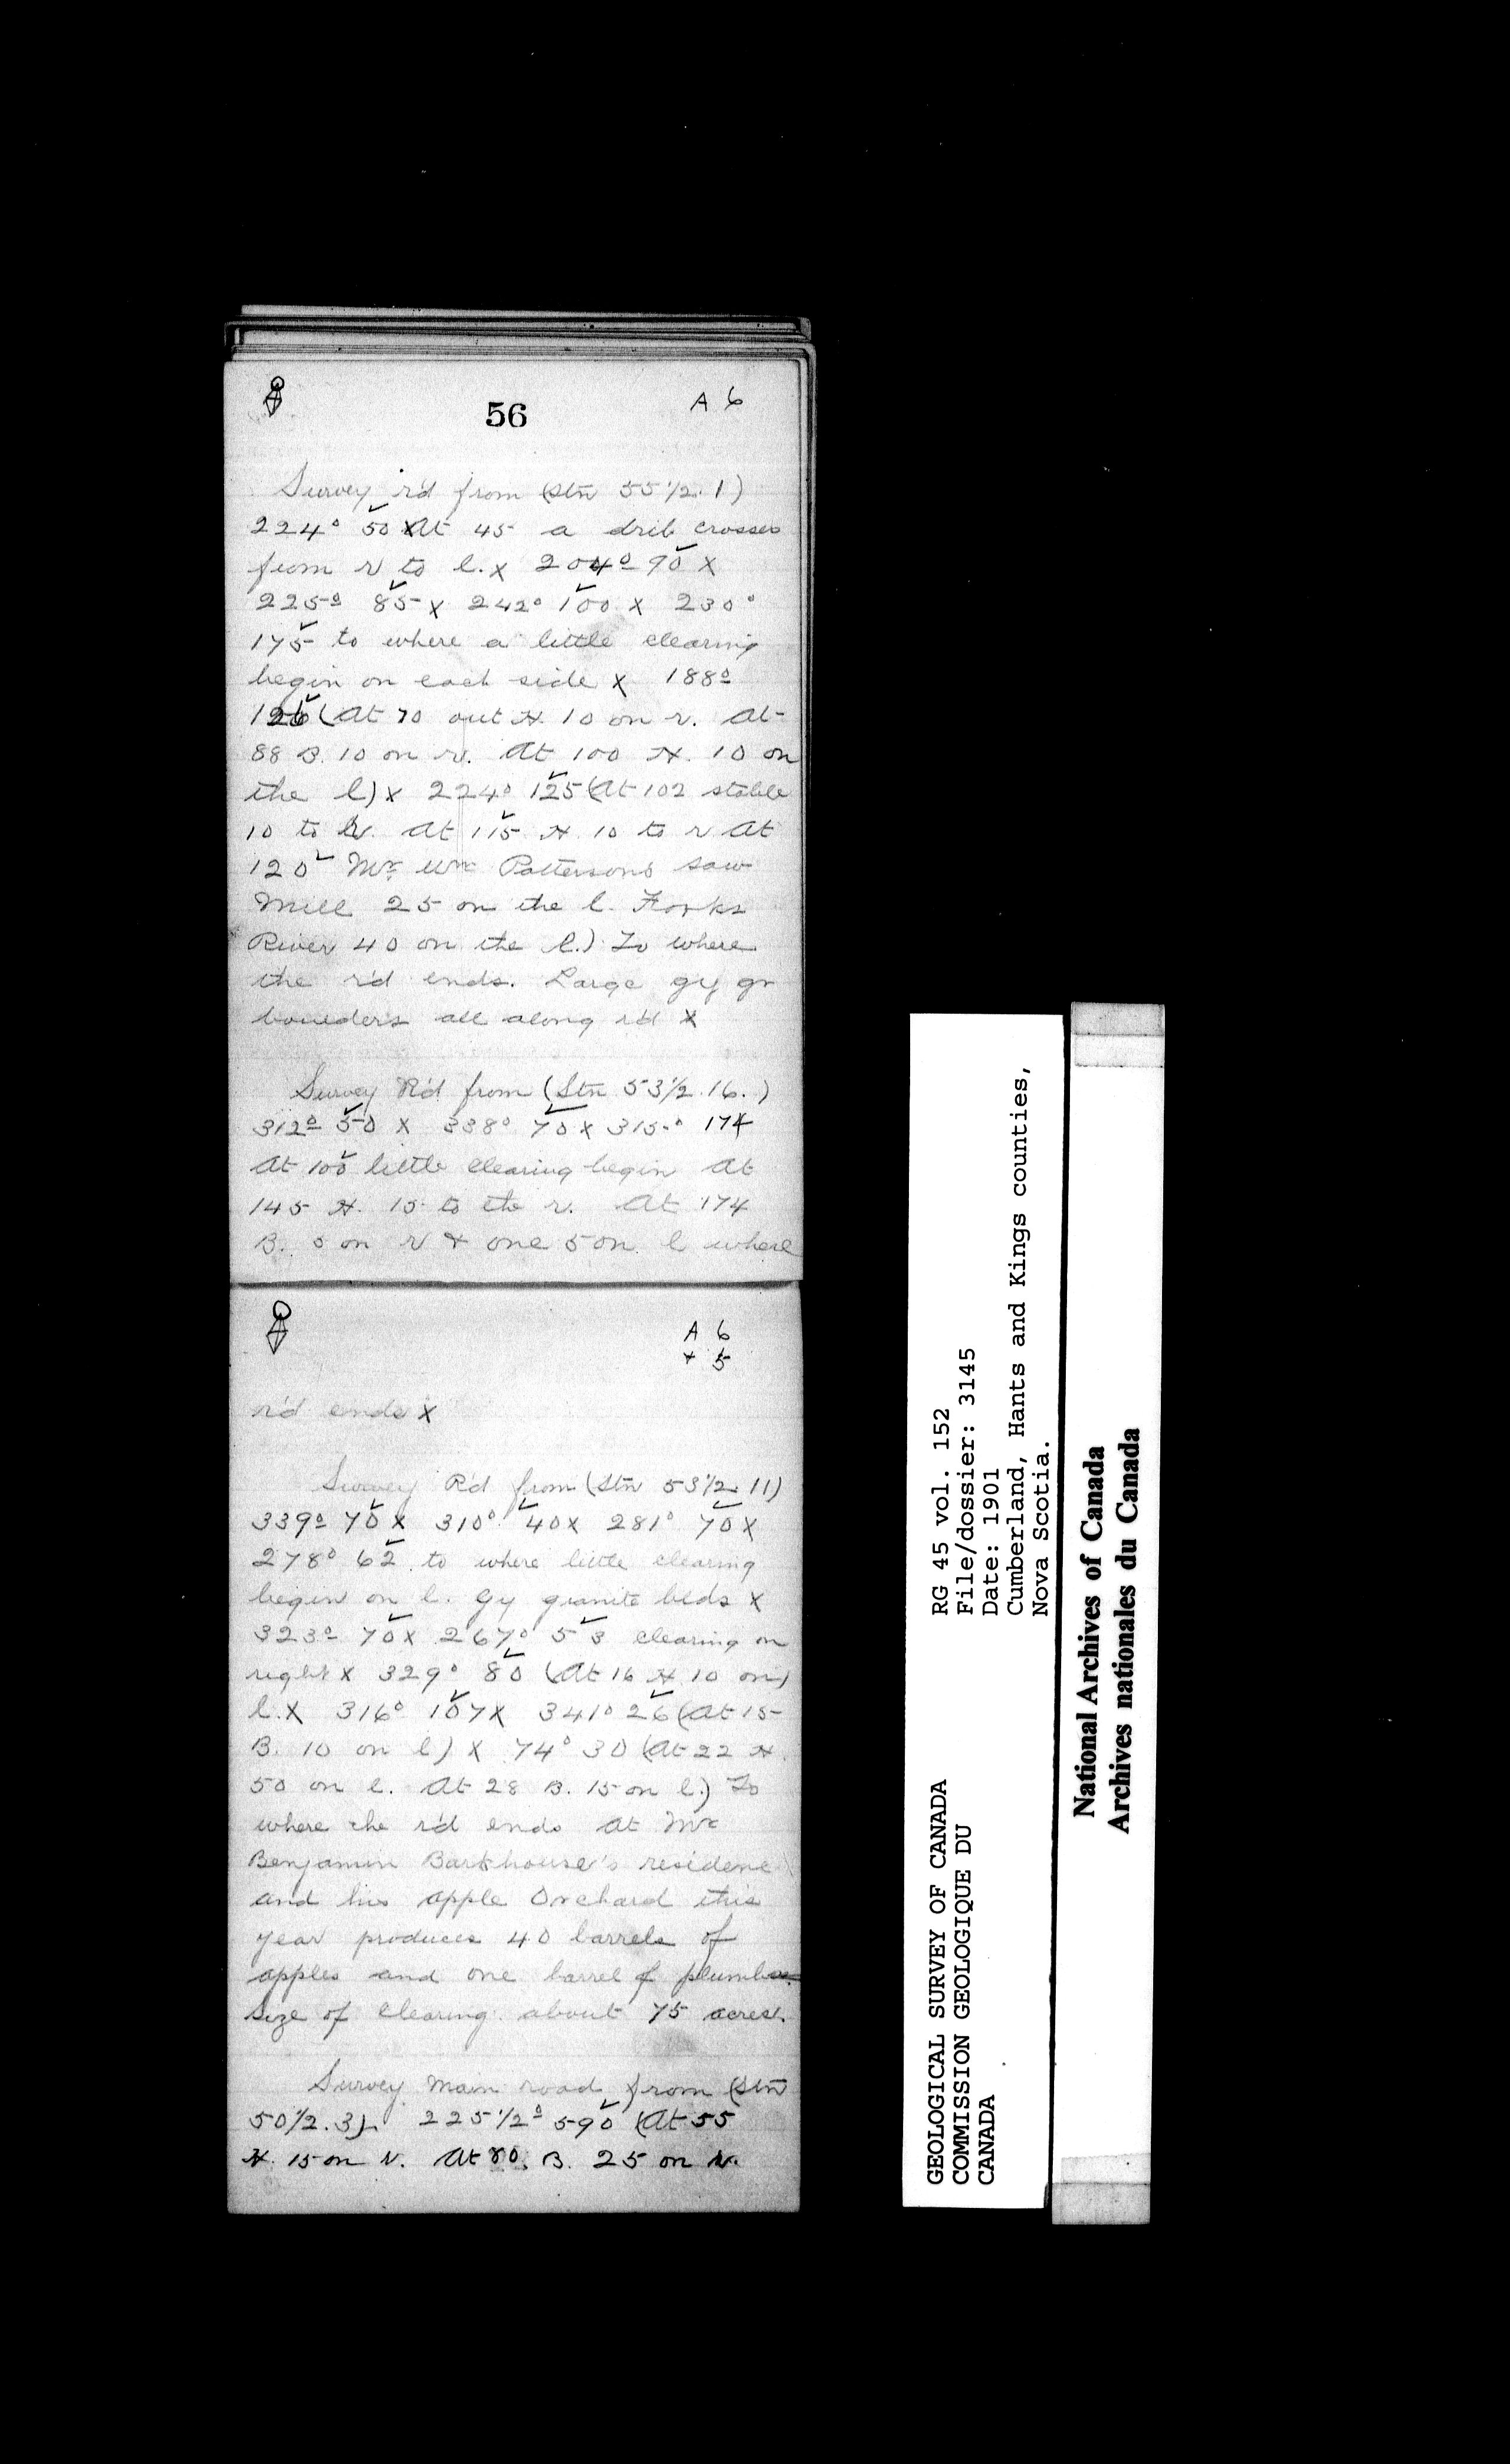 56
A 6
Survey r'd from (Stn 55 1/2. 1)
224° 50 x At 45 a drib crosses
from r to l. x 204° 90 x
225° 85 x 242° 100 x 230°
175 to where a little clearing
begin on each side x 188°
126 (At 70 out H. 10 on r. At
88 B. 10 on r. At 100 H. 10 on
the l) x 224° 125 (At 102 stable
10 to r. At 115 H. 10 to r At
120 Mr. Wm Pattersons saw
Mill 25 on the l. Forks
River 40 on the l.) To where
the r'd ends. Large gy gr
boulders all along r'd x
Survey R'd from (Stn 53 1/2. 16.)
312° 50 x 338° 70 x 315° 174
At 100 little clearing begin At
145 H. 15 to the r. At 174
B. 5 on r & one 5 on l where
A 6
+ 5
r'd ends x
Survey R'd from (Stn 53 1/2. 11)
339° 70 x 310° 40 x 281° 70 x
278° 62 to where little clearing
begin on l. Gy granite blds x
323° 70 x 267° 53 clearing on
right x 329° 80 (At 16 H 10 on)
l. x 316° 107 x 341° 26 (At 15
B. 10 on l) x 74° 30 (At 22 H.
50 on l. At 28 B. 15 on l.) To
where the r'd ends at Mr
Benjamin Barkhouse's residene
and his apple Orchard this
year produces 40 barrels of
apples and one barrel of plumbs.
Size of clearing about 75 acres.
Survey Main road from (Stn
50 1/2. 3). 225 1/2° 590 (At 55
H. 15 on r. At 80. B. 25 on r.
GEOLOGICAL SURVEY OF CANADA
COMMISSION GEOLOGIQUE DU
CANADA
RG 45 vol. 152
File/dossier: 3145
Date: 1901
Cumberland, Hants and Kings counties,
Nova Scotia.
National Archives of Canada
Archives nationales du Canada